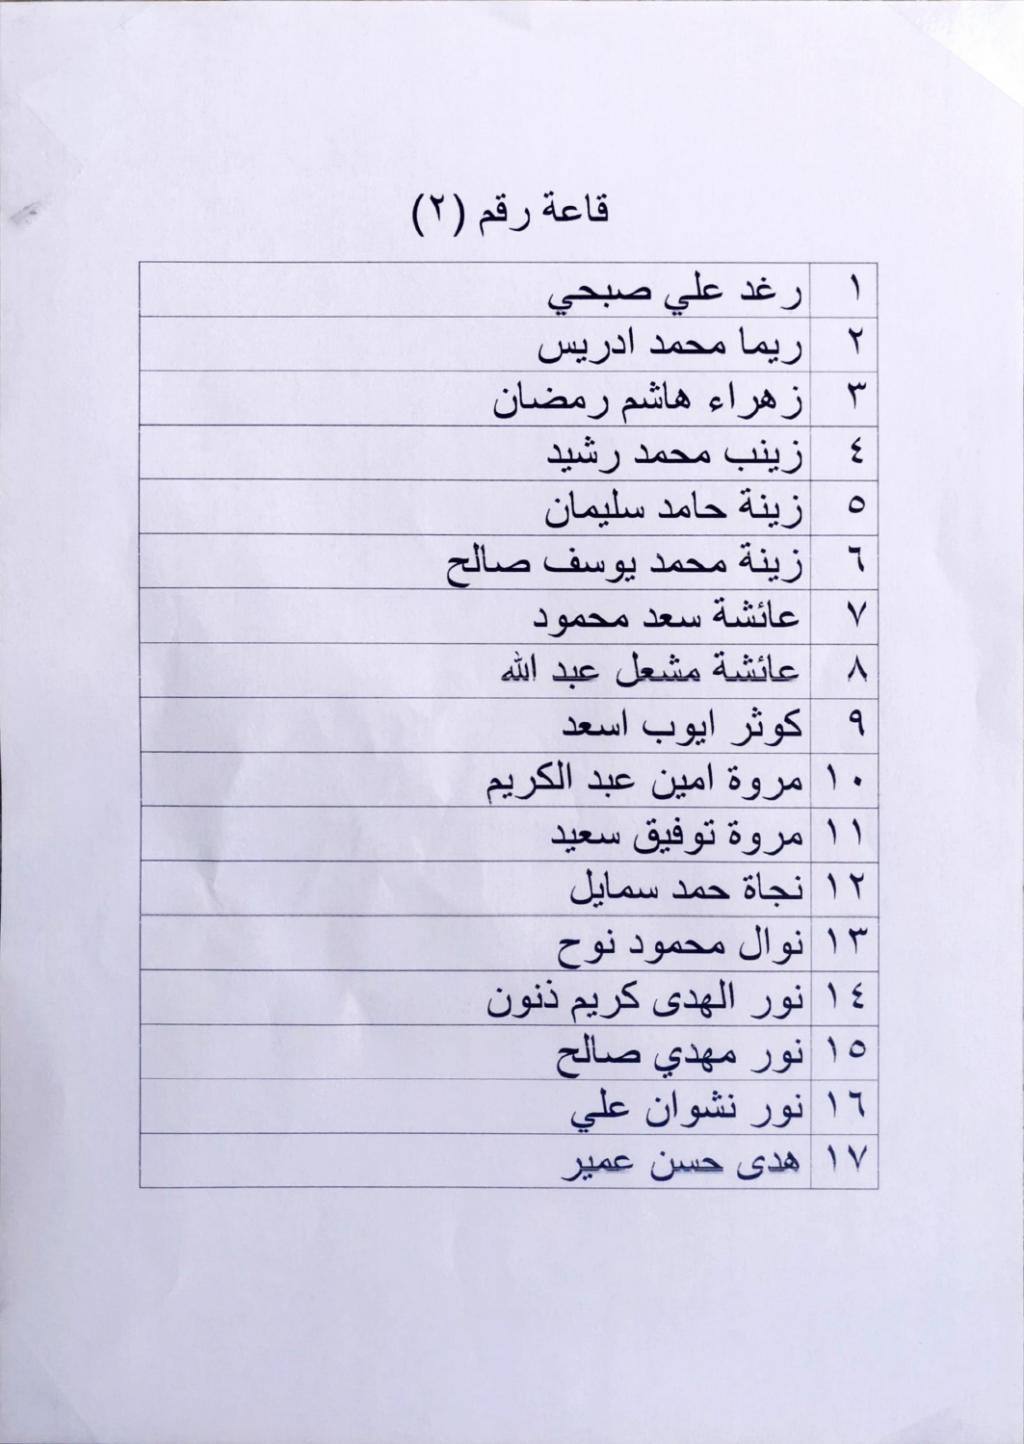 قاعة رقم (٢)
١ رغد علي صبحي
٢ ريما محمد ادريس
٣ زهراء هاشم رمضان
٤ زينب محمد رشيد
٥ زينة حامد سليمان
٦ زينة محمد يوسف صالح
٧ عائشة سعد محمود
٨ عائشة مشعل عبد الله
٩ كوثر ايوب اسعد
١٠ مروة امين عبد الكريم
١١ مروة توفيق سعيد
١٢ نجاة حمد سمايل
١٣ نوال محمود نوح
١٤ نور الهدى كريم ذنون
١٥ نور مهدي صالح
١٦ نور نشوان علي
١٧ هدى حسن عمير